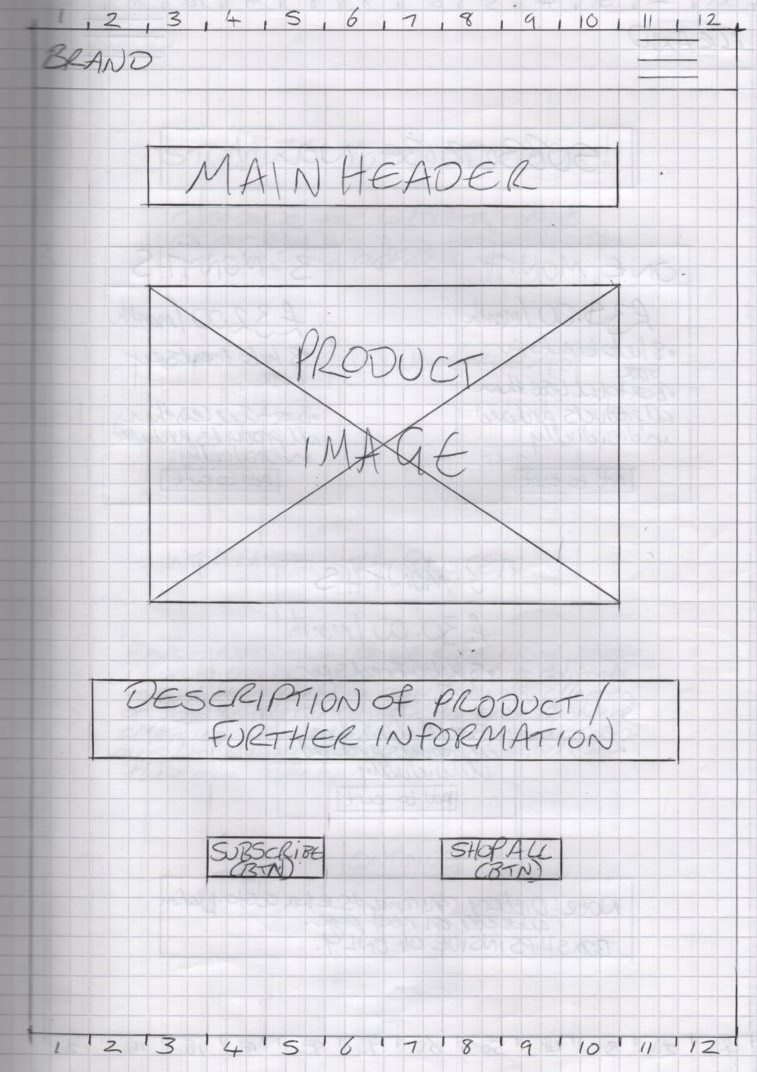 1 2 3 4 5 6 7 8 9 10 11 12
BRAND
MAIN HEADER
PRODUCT
IMAGE
DESCRIPTION OF PRODUCT /
FURTHER INFORMATION
SUBSCRIBE
(BTN)
SHOP ALL
(BTN)
1 2 3 4 5 6 7 8 9 10 11 12